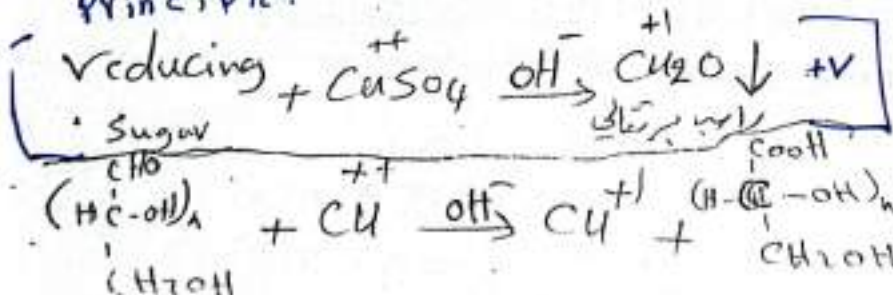 Principle:
reducing Sugar + CuSO4 ++ OH⁻ → Cu2O +1 ↓ +v
راسب برتقالي
CHO
(H-C-OH)n + Cu ++ OH⁻ → Cu +1 + (H-C-OH)n
CH2OH
COOH
CH2OH